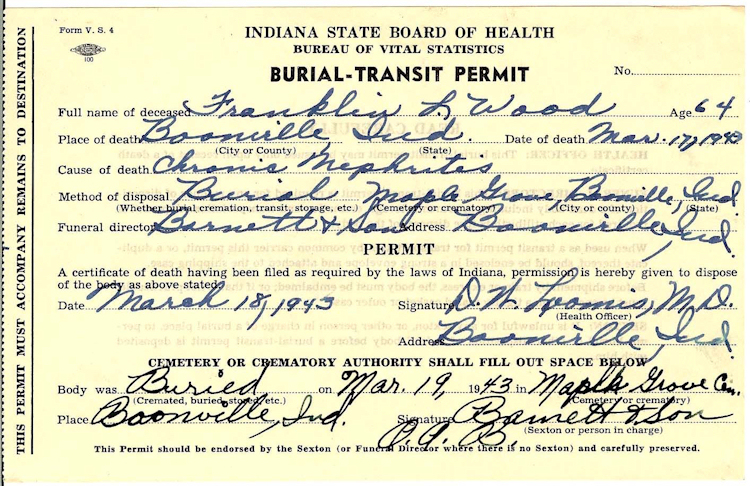 Form V. S. 4
100
INDIANA STATE BOARD OF HEALTH
BUREAU OF VITAL STATISTICS
BURIAL-TRANSIT PERMIT
No.
Full name of deceased Franklin L. Wood Age 64
Place of death Boonville, Ind. Date of death Mar. 17, 1943
(City or County) (State)
Cause of death Chronic Nephrites
Method of disposal Burial Maple Grove, Boonville, Ind
(Whether burial cremation, transit, storage, etc.) (Cemetery or crematory) (City or county) (State)
Funeral director Barnett & Son Address Boonville, Ind.
PERMIT
A certificate of death having been filed as required by the laws of Indiana, permission is hereby given to dispose
of the body as above stated.
Date March 18, 1943 Signature D. W. Loomis, M.D.
(Health Officer)
Address Boonville, Ind
CEMETERY OR CREMATORY AUTHORITY SHALL FILL OUT SPACE BELOW
Body was Buried on Mar. 19, 1943 in Maple Grove Cem.
(Cremated, buried, stored, etc.) (Cemetery or crematory)
Place Boonville, Ind. Signature Barnett & Son
(Sexton or person in charge)
This Permit should be endorsed by the Sexton (or Funeral Director where there is no Sexton) and carefully preserved.
THIS PERMIT MUST ACCOMPANY REMAINS TO DESTINATION